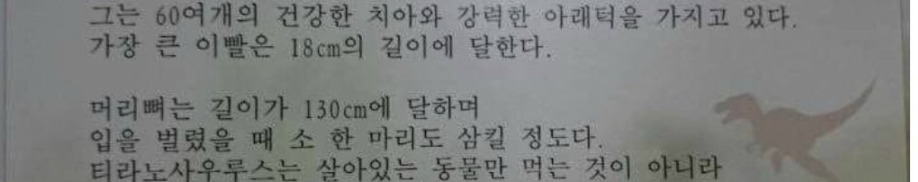 그는 60여개의 건강한 치아와 강력한 아래턱을 가지고 있다.
가장 큰 이빨은 18cm의 길이에 달한다.
머리뼈는 길이가 130cm에 달하며
입을 벌렸을 때 소 한 마리도 삼킬 정도다.
티라노사우루스는 살아있는 동물만 먹는 것이 아니라